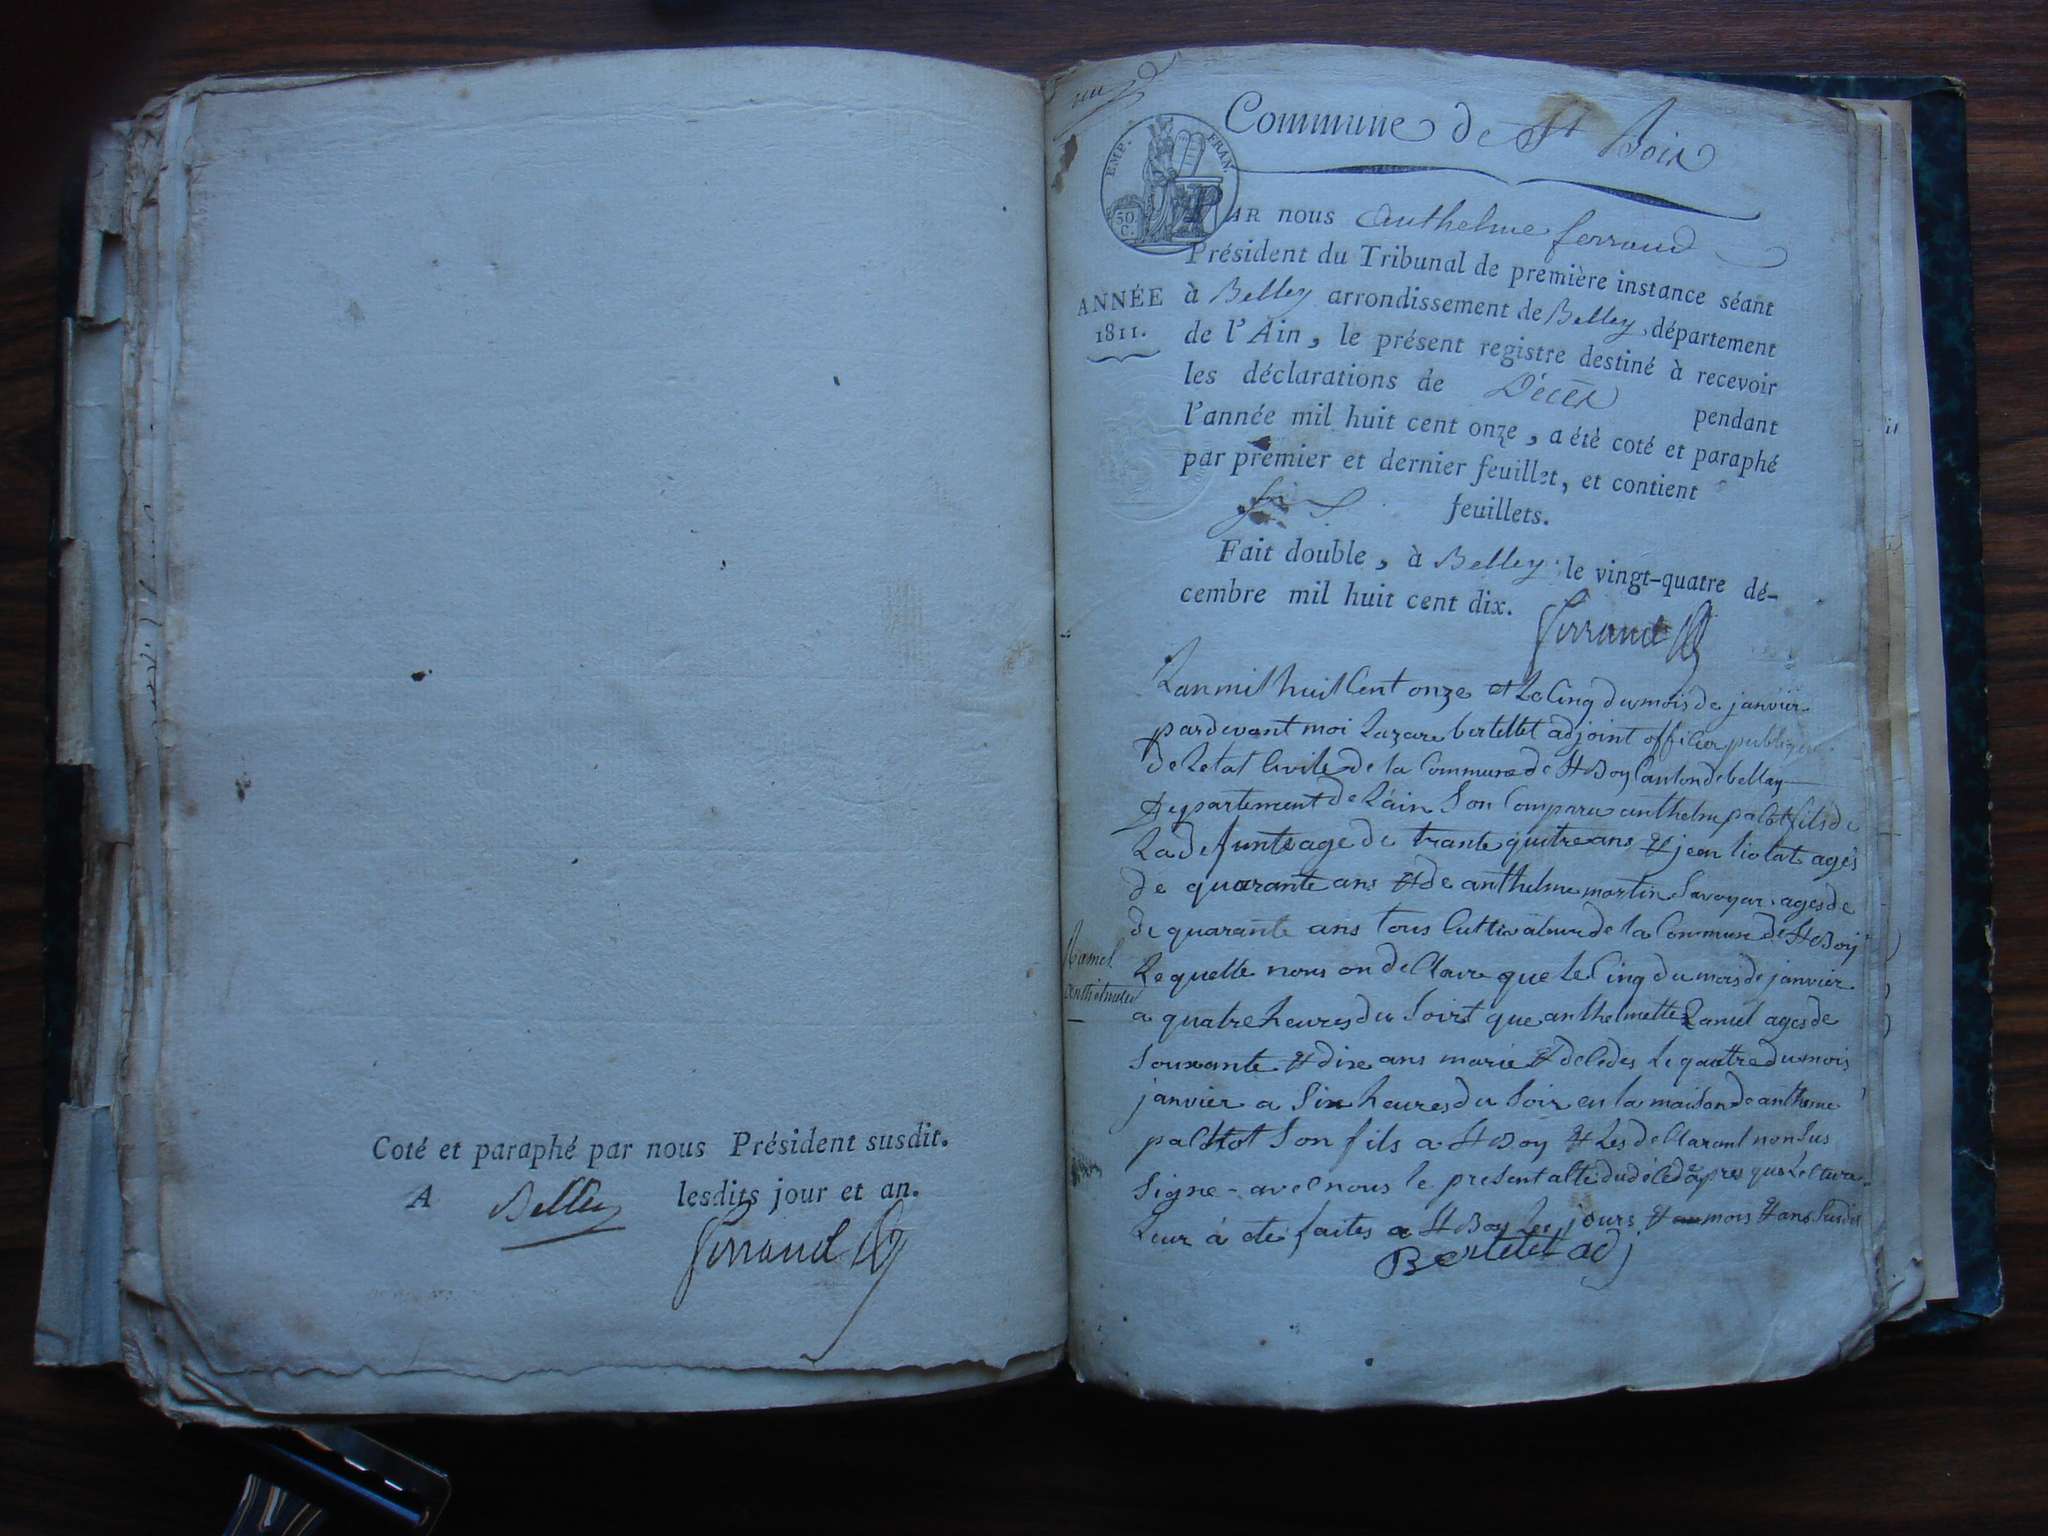 Coté et paraphé par nous Président susdit.
A Belley lesdits jour et an.
Ferrand
Commune de St Boix
EMP. FRAN.
50 C.
AR nous Anthelme ferrand
Président du Tribunal de première instance séant
ANNÉE
1811.
à Belley arrondissement de Belley, département
de l'Ain, le présent registre destiné à recevoir
les déclarations de Décès pendant
l'année mil huit cent onze, a été coté et paraphé
par premier et dernier feuillet, et contient
six feuillets.
Fait double, à Belley le vingt-quatre dé-
cembre mil huit cent dix.
Ferrand
Lan mil huit Cent onze et Le Cinq du mois de janvier
pardevant moi Lazare bertellet adjoint officier publique
de Letat Civile de la Commune de St Boy Canton de bellay
Departement de Lain Son Comparu anthelme palot fils de
La defunte age de trante quitre ans et jean liotat agés
de quarante ans et de anthelme martin Savoyar ages de
de quarante ans tous Cultivateur de la Commune de St Boy
Ramel
Anthelmette
Lequelle nous on declare que le Cinq du mois de janvier
a quatre heures du Soirt que anthelmette Ramel ages de
Souxante et dix ans marie et decedes Le quattre du mois
janvier a Six heures du Soir en la maison de anthelme
palot Son fils a St Boy et Les declarant non Sus
Signe - avec nous le present alte du déced apres que Lectura
Leur à ete faites a St Boy Les jours et mois et ans Susdis
Bertelet adj